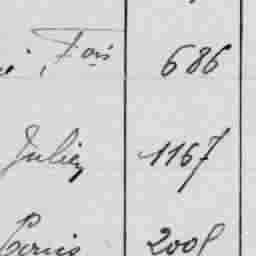 Fois 686
Julien 1167
Paris 2008